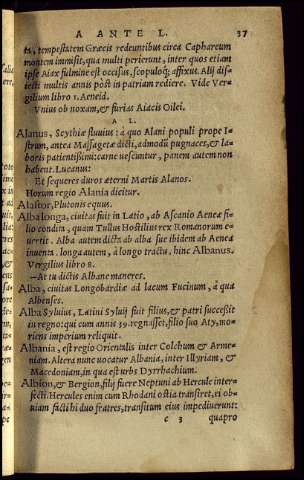 A ANTE L. 37
ta, tempestatem Græcis redeuntibus circa Caphareum
montem immisit, qua multi perierunt, inter quos etiam
ipse Aiax fulmine est occisus, scopuloq; affixus. Alij dis-
iecti multis annis pòst in patriam rediere. Vide Ver-
gilium libro 1. Aeneid.
Vnius ob noxam, & furias Aiacis Oilei.
A L.
Alanus, Scythiæ fluuius: à quo Alani populi prope I-
strum, antea Massagetæ dicti, admodū pugnaces, & la-
boris patientissimi: carne uescuntur, panem autem non
habent. Lucanus:
Et sequeres duros æterni Martis Alanos.
Horum regio Alania dicitur.
Alastor, Plutonis equus.
Alba longa, ciuitas fuit in Latio, ab Ascanio Aeneæ fi-
lio condita, quam Tullus Hostilius rex Romanorum e-
uertit. Alba autem dicta ab alba sue ibidem ab Aenea
inuenta. longa autem, à longo tractu, hinc Albanus.
Vergilius libro 8.
—At tu dictis Albane maneres.
Alba, ciuitas Longobardiæ ad lacum Fucinum, à qua
Albenses.
Alba Syluius, Latini Syluij fuit filius, & patri successit
in regno: qui cum annis 39. regnasset, filio suo Aty, mo-
riens imperium reliquit.
Albania, est regio Orientalis inter Colchum & Arme-
niam. Altera nunc uocatur Albania, inter Illyriam, &
Macedoniam, in qua est urbs Dyrrhachium.
Albion, & Bergion, filij fuere Neptuni ab Hercule inter-
fecti. Hercules enim cum Rhodani ostia transiret, ei ob-
uiam facti hi duo fratres, transitum eius impediuerunt:
c 3 quapro